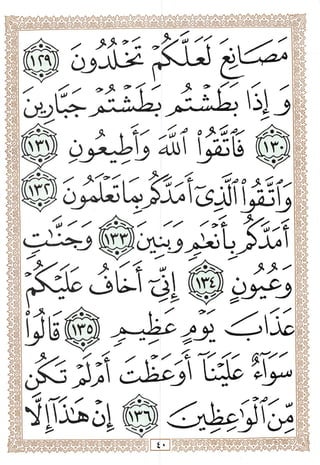 مَصَانِعَ لَعَلَّكُمْ تَخْلُدُونَ ١٢٩
وَإِذَا بَطَشْتُم بَطَشْتُمْ جَبَّارِينَ
١٣٠ فَٱتَّقُوا۟ ٱللَّهَ وَأَطِيعُونِ ١٣١
وَٱتَّقُوا۟ ٱلَّذِىٓ أَمَدَّكُم بِمَا تَعْلَمُونَ ١٣٢
أَمَدَّكُم بِأَنْعَـٰمٍ وَبَنِينَ ١٣٣ وَجَنَّـٰتٍ
وَعُيُونٍ ١٣٤ إِنِّىٓ أَخَافُ عَلَيْكُمْ
عَذَابَ يَوْمٍ عَظِيمٍ ١٣٥ قَالُوا۟
سَوَآءٌ عَلَيْنَآ أَوَعَظْتَ أَمْ لَمْ تَكُن
مِّنَ ٱلْوَٰعِظِينَ ١٣٦ إِنْ هَـٰذَآ إِلَّا
٤٠